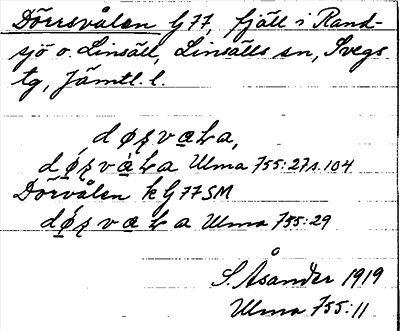 Dörrsvålen G 77, fjäll i Rand-
sjö o. Linsäll, Linsälls sn, Svegs
tg, Jämtl. l.
Ulma 755:27 s. 104
Dörvålen k G 77 SM
Ulma 755:29
S. Åsander 1919
Ulma 755:11